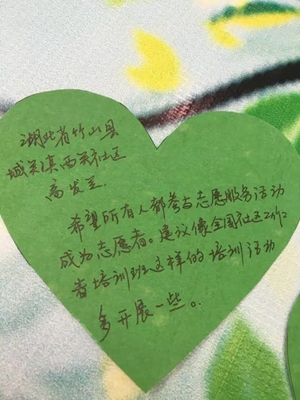 湖北省竹山县
城关镇西关社区
高发兰
希望所有人都参与志愿服务活动
成为志愿者。建议像全国社区工作
者培训班这样的培训活动
多开展一些。